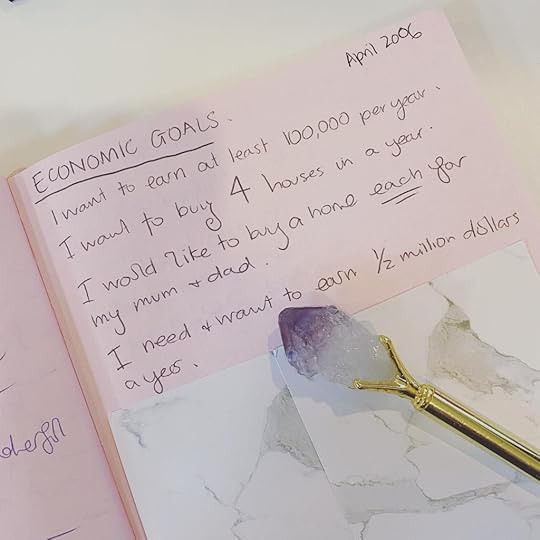 April 2006
ECONOMIC GOALS.
I want to earn at least 100,000 per year.
I want to buy 4 houses in a year.
I would like to buy a home each for
my mum + dad.
I need + want to earn ½ million dollars
a year.